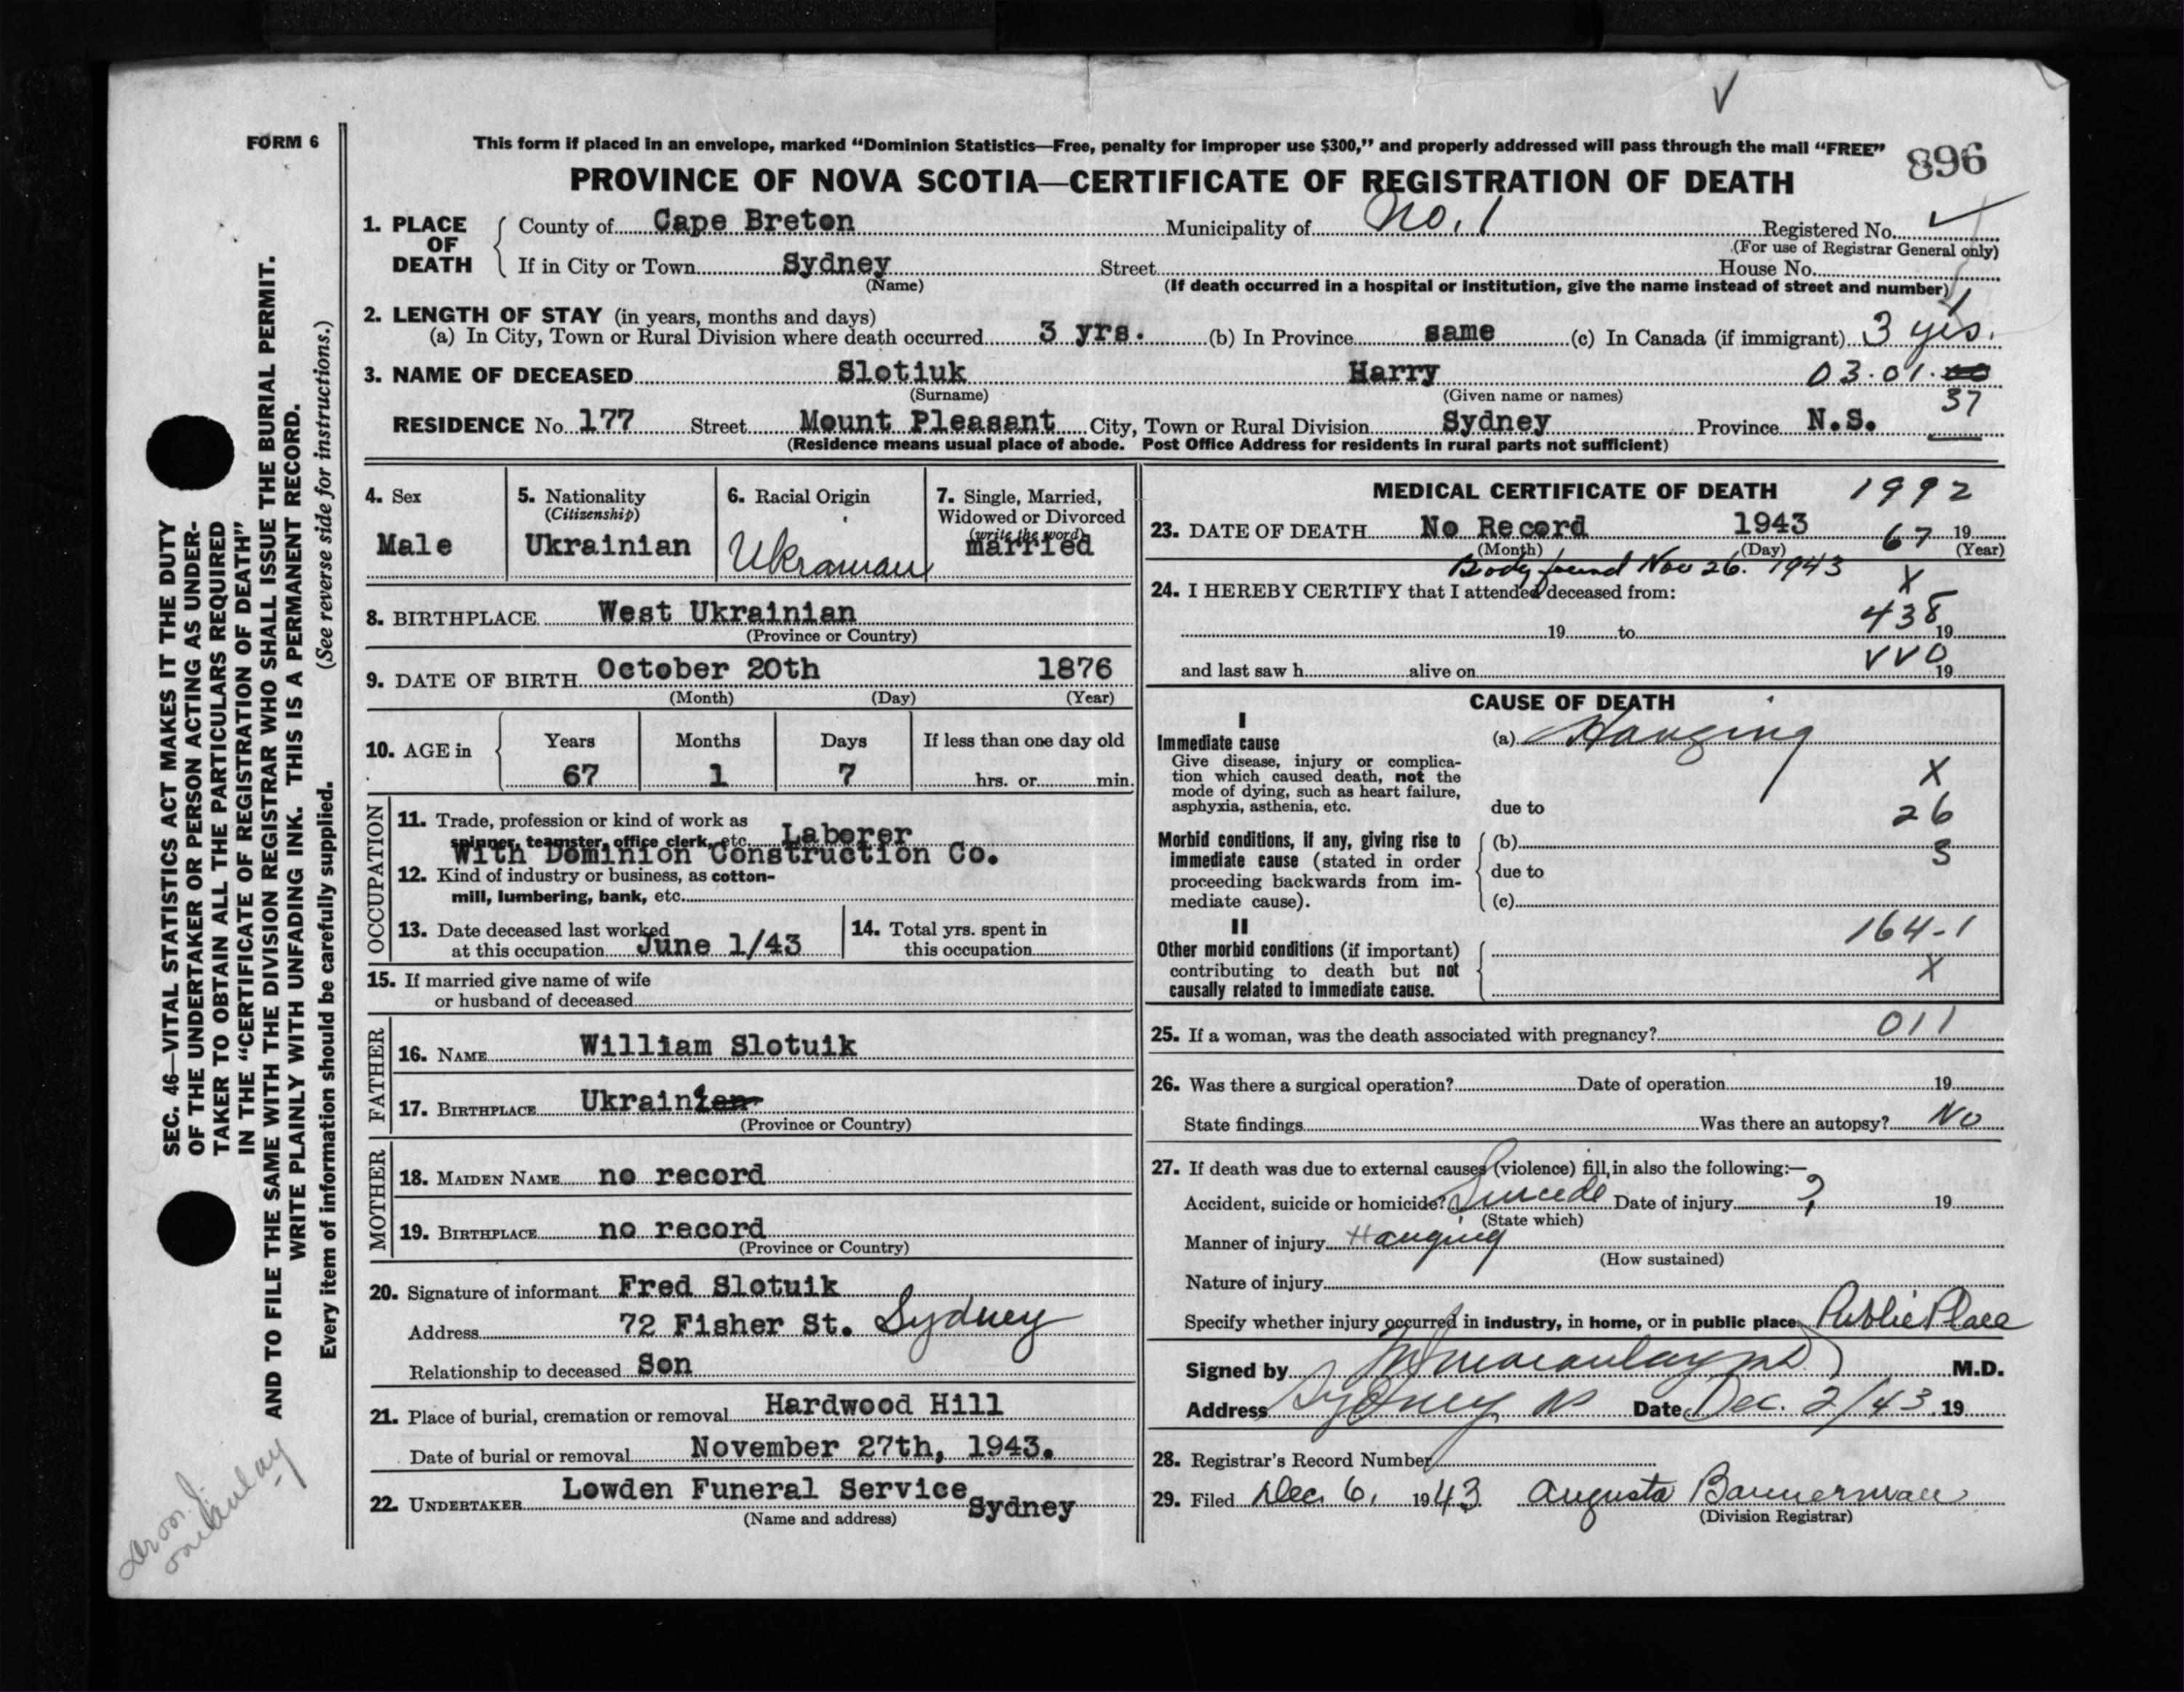 FORM 6
This form if placed in an envelope, marked “Dominion Statistics—Free, penalty for improper use $300,” and properly addressed will pass through the mail “FREE”
896
PROVINCE OF NOVA SCOTIA—CERTIFICATE OF REGISTRATION OF DEATH
1. PLACE OF DEATH
County of Cape Breton Municipality of No. 1 Registered No.
(For use of Registrar General only)
If in City or Town Sydney Street House No.
(Name) (If death occurred in a hospital or institution, give the name instead of street and number)
2. LENGTH OF STAY (in years, months and days)
(a) In City, Town or Rural Division where death occurred 3 yrs. (b) In Province same (c) In Canada (if immigrant) 3 yrs.
3. NAME OF DECEASED Slotiuk Harry 03.01.
(Surname) (Given name or names) 37
RESIDENCE No. 177 Street Mount Pleasant City, Town or Rural Division Sydney Province N.S.
(Residence means usual place of abode. Post Office Address for residents in rural parts not sufficient)
4. Sex
Male
5. Nationality
(Citizenship)
Ukrainian
6. Racial Origin
Ukranian
7. Single, Married,
Widowed or Divorced
(write the word)
married
8. BIRTHPLACE West Ukrainian
(Province or Country)
9. DATE OF BIRTH October 20th 1876
(Month) (Day) (Year)
10. AGE in
Years Months Days If less than one day old
67 1 7 hrs. or min.
OCCUPATION
11. Trade, profession or kind of work as
spinner, teamster, office clerk, etc. Laborer
With Dominion Construction Co.
12. Kind of industry or business, as cotton-
mill, lumbering, bank, etc.
13. Date deceased last worked
at this occupation June 1/43
14. Total yrs. spent in
this occupation
15. If married give name of wife
or husband of deceased
FATHER
16. NAME William Slotuik
17. BIRTHPLACE Ukrainian
(Province or Country)
MOTHER
18. MAIDEN NAME no record
19. BIRTHPLACE no record
(Province or Country)
20. Signature of informant Fred Slotuik
Address 72 Fisher St. Sydney
Relationship to deceased Son
21. Place of burial, cremation or removal Hardwood Hill
Date of burial or removal November 27th, 1943.
22. UNDERTAKER Lowden Funeral Service Sydney
(Name and address)
MEDICAL CERTIFICATE OF DEATH 1992
23. DATE OF DEATH No Record 1943 67 19
(Month) (Day) (Year)
Body found Nov 26. 1943 X
24. I HEREBY CERTIFY that I attended deceased from:
438
19 to 19
VVO
and last saw h alive on 19
CAUSE OF DEATH
I
Immediate cause (a) Hanging
Give disease, injury or complica-
tion which caused death, not the X
mode of dying, such as heart failure,
asphyxia, asthenia, etc. due to 26
Morbid conditions, if any, giving rise to (b)
immediate cause (stated in order
proceeding backwards from im- due to
mediate cause). (c)
164-1
II
Other morbid conditions (if important)
contributing to death but not X
causally related to immediate cause.
25. If a woman, was the death associated with pregnancy? 011
26. Was there a surgical operation? Date of operation 19
State findings Was there an autopsy? No
27. If death was due to external causes (violence) fill in also the following:—
Accident, suicide or homicide? Suicide Date of injury ? 19
(State which)
Manner of injury Hanging
(How sustained)
Nature of injury
Specify whether injury occurred in industry, in home, or in public place Public Place
Signed by M.D.
Address Sydney NS Date Dec. 2/43 19
28. Registrar's Record Number
29. Filed Dec. 6, 1943 Augusta Bannerman
(Division Registrar)
SEC. 46—VITAL STATISTICS ACT MAKES IT THE DUTY
OF THE UNDERTAKER OR PERSON ACTING AS UNDER-
TAKER TO OBTAIN ALL THE PARTICULARS REQUIRED
IN THE “CERTIFICATE OF REGISTRATION OF DEATH”
AND TO FILE THE SAME WITH THE DIVISION REGISTRAR WHO SHALL ISSUE THE BURIAL PERMIT.
WRITE PLAINLY WITH UNFADING INK. THIS IS A PERMANENT RECORD.
Every item of information should be carefully supplied. (See reverse side for instructions.)